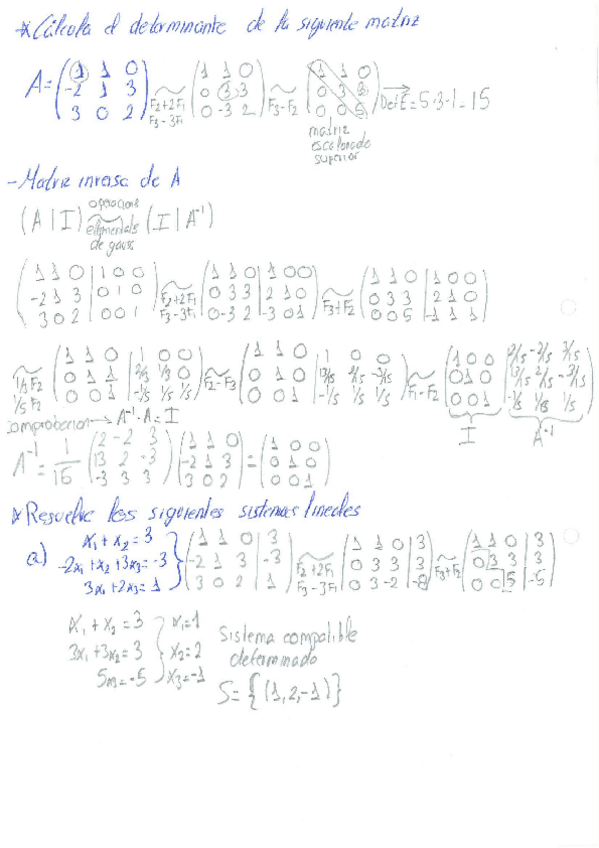 * Cálcula el determinante de la siguiente matriz
A = (1 1 0 / -2 1 3 / 3 0 2) ~ F2+2F1 F3-3F1 (1 1 0 / 0 3 3 / 0 -3 2) ~ F3-F2 (1 1 0 / 0 3 3 / 0 0 5) → Det E = 5·3·1 = 15
matriz
escalonado
superior
- Matriz inversa de A
(A | I) ~ operaciones elementales de gauss (I | A⁻¹)
(1 1 0 | 1 0 0 / -2 1 3 | 0 1 0 / 3 0 2 | 0 0 1) ~ F2+2F1 F3-3F1 (1 1 0 | 1 0 0 / 0 3 3 | 2 1 0 / 0 -3 2 | -3 0 1) ~ F3+F2 (1 1 0 | 1 0 0 / 0 3 3 | 2 1 0 / 0 0 5 | -1 1 1)
~ 1/3 F2 1/5 F2 (1 1 0 | 1 0 0 / 0 1 1 | 2/3 1/3 0 / 0 0 1 | -1/5 1/5 1/5) ~ F2-F3 (1 1 0 | 1 0 0 / 0 1 0 | 13/15 2/15 -3/15 / 0 0 1 | -1/5 1/5 1/5) ~ F1-F2 (1 0 0 | 2/15 -2/15 3/15 / 0 1 0 | 13/15 2/15 -3/15 / 0 0 1 | -1/5 1/5 1/5)
I A⁻¹
comprobacion → A⁻¹·A = I
A⁻¹ = 1/15 (2 -2 3 / 13 2 -3 / -3 3 3) (1 1 0 / -2 1 3 / 3 0 2) = (1 0 0 / 0 1 0 / 0 0 1)
* Resuelve los siguientes sistemas lineales
a) x1 + x2 = 3 / -2x1 + x2 + 3x3 = -3 / 3x1 + 2x3 = 1 } (1 1 0 | 3 / -2 1 3 | -3 / 3 0 2 | 1) ~ F2+2F1 F3-3F1 (1 1 0 | 3 / 0 3 3 | 3 / 0 3 -2 | -8) ~ F3+F2 (1 1 0 | 3 / 0 3 3 | 3 / 0 0 5 | -5)
x1 + x2 = 3 } x1=1
3x1 + 3x2 = 3 } x2=2
5x3 = -5 } x3=-1
Sistema compatible
determinado
S = {(1, 2, -1)}